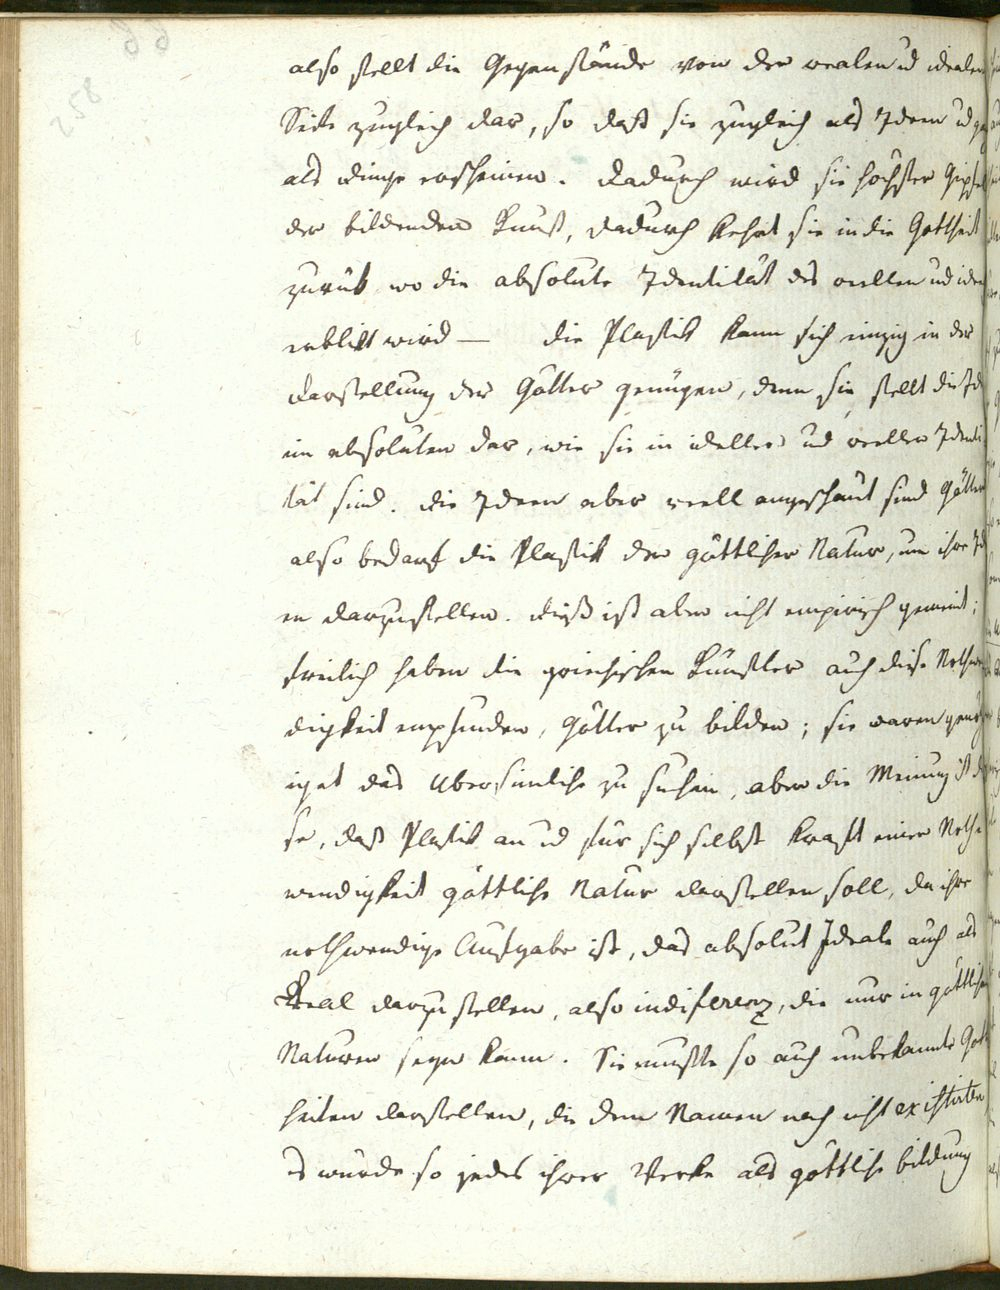 also stellt die Gegenstände von der realen ud idealen
Seite zugleich dar, so daß sie zugleich als Ideen ud
als Dinge erscheinen. Dadurch wird sie höchster Gipfel
der bildenden Kunst, dadurch kehrt sie in die Gottheit
zurük wo die absolute Identität des reellen ud
erblikt wird — die Plastik kann sich einzig in der
Darstellung der Götter genügen, denn sie stellt die
im absoluten dar, wie sie in ideller ud reeller Identi
tät sind. die Ideen aber reell angeschaut sind Götter
also bedarf die Plastik der göttlichen Natur, um ihre
en darzustellen. dieß ist aber nicht empirisch gemeint;
freilich haben die griechischen Künstler auch diese Nothwen
digkeit empfunden, Götter zu bilden; sie waren
das Übersinnliche zu suchen, aber die Meinung ist die
se, daß Plastik an ud für sich selbst kraft einer Noth
wendigkeit göttliche Natur darstellen soll, da ihre
nothwendige Aufgabe ist, das absolut Ideale auch als
Real darzustellen, also indiferenz, die nur in göttlichen
Naturen seyn kann. Sie mußte so auch unbekannte Gott
heiten darstellen, die dem Namen nach nicht existirten
es wurde so jedes ihrer Werke als göttliche bildung